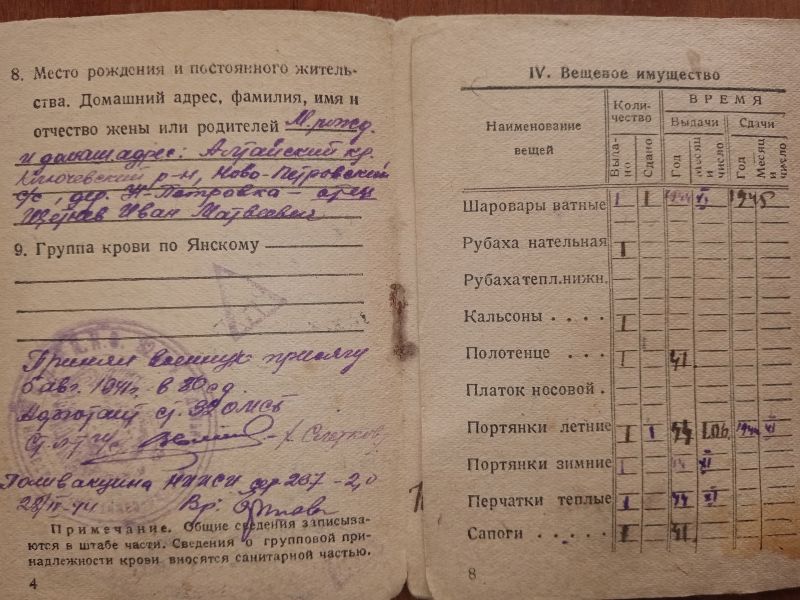 8. Место рождения и постоянного житель-
ства. Домашний адрес, фамилия, имя и
отчество жены или родителей М. рожд.
и домаш. адрес: Алтайский кр.
Ключевский р-н, Ново-Петровский
с/с, дер. Н-Петровка – отец
Иван Матвеевич
9. Группа крови по Янскому
Принял военную присягу
6 авг. 1941г. в
Адъютант ст.
Поливакцина НИИСИ 267 – 2,0
Вр:
Примечание. Общие сведения записыва-
ются в штабе части. Сведения о групповой при-
надлежности крови вносятся санитарной частью.
4
IV. Вещевое имущество
Наименование
вещей
Коли-
чество
ВРЕМЯ
Выдачи
Сдачи
Выда-
но
Сдано
Год
Месяц
и
число
Год
Месяц
и число
Шаровары ватные 1 1 1944 XI 1945
Рубаха нательная 1
Рубаха тепл. нижн.
Кальсоны . . . . 1
Полотенце . . . 1 41
Платок носовой .
Портянки летние 1 1 44 1944 XI
Портянки зимние 1 44 XI
Перчатки теплые 1 44 XI
Сапоги . . . . . 1 41
8